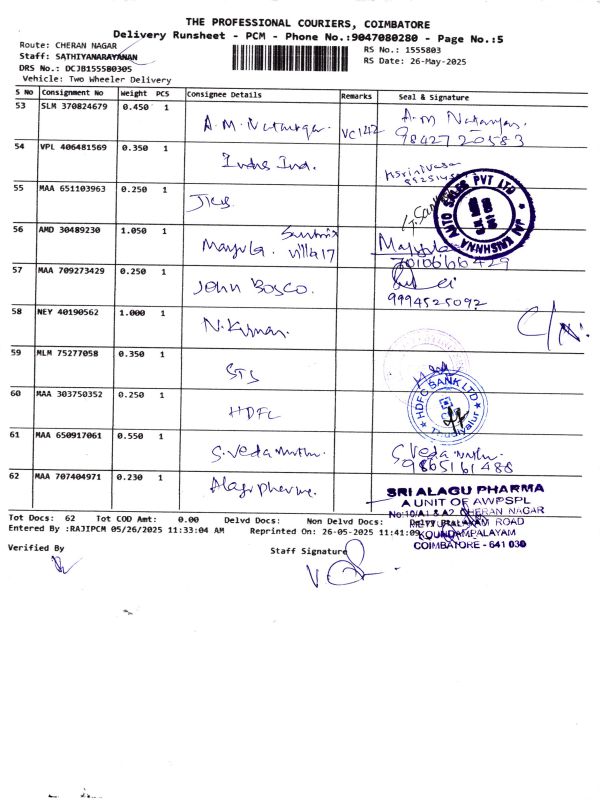 THE PROFESSIONAL COURIERS, COIMBATORE
Delivery Runsheet - PCM - Phone No.:9047080280 - Page No.:5
Route: CHERAN NAGAR
RS No.: 1555803
Staff: SATHIYANARAYANAN
RS Date: 26-May-2025
DRS No.: DCJB155580305
Vehicle: Two Wheeler Delivery
S No Consignment No Weight PCS Consignee Details Remarks Seal & Signature
53 SLM 370824679 0.450 1 A.M. VC142 A.M
9842720583
54 VPL 406481569 0.350 1 Indus Ind.
55 MAA 651103963 0.250 1
JAI KRISHNNA AUTO SALES PVT LTD
56 AMD 30489230 1.050 1 villa 17
7010666429
57 MAA 709273429 0.250 1 John Bosco.
9994525092
58 NEY 40190562 1.000 1 N.Kumar. C/N.
59 MLM 75277058 0.350 1 STS
60 MAA 303750352 0.250 1 HDFC
HDFC BANK LTD
Thudiyalur
61 MAA 650917061 0.550 1 S.Veda S.Veda
9865161488
62 MAA 707404971 0.230 1 Alagu pharma.
SRI ALAGU PHARMA
A UNIT OF AWPSPL
No:10/A1 & A2 CHERAN NAGAR
METTUPALAYAM ROAD
KOUNDAMPALAYAM
COIMBATORE - 641 030
Tot Docs: 62 Tot COD Amt: 0.00 Delvd Docs: Non Delvd Docs:
Entered By :RAJIPCM 05/26/2025 11:33:04 AM Reprinted On: 26-05-2025 11:41:09
Verified By
Staff Signature